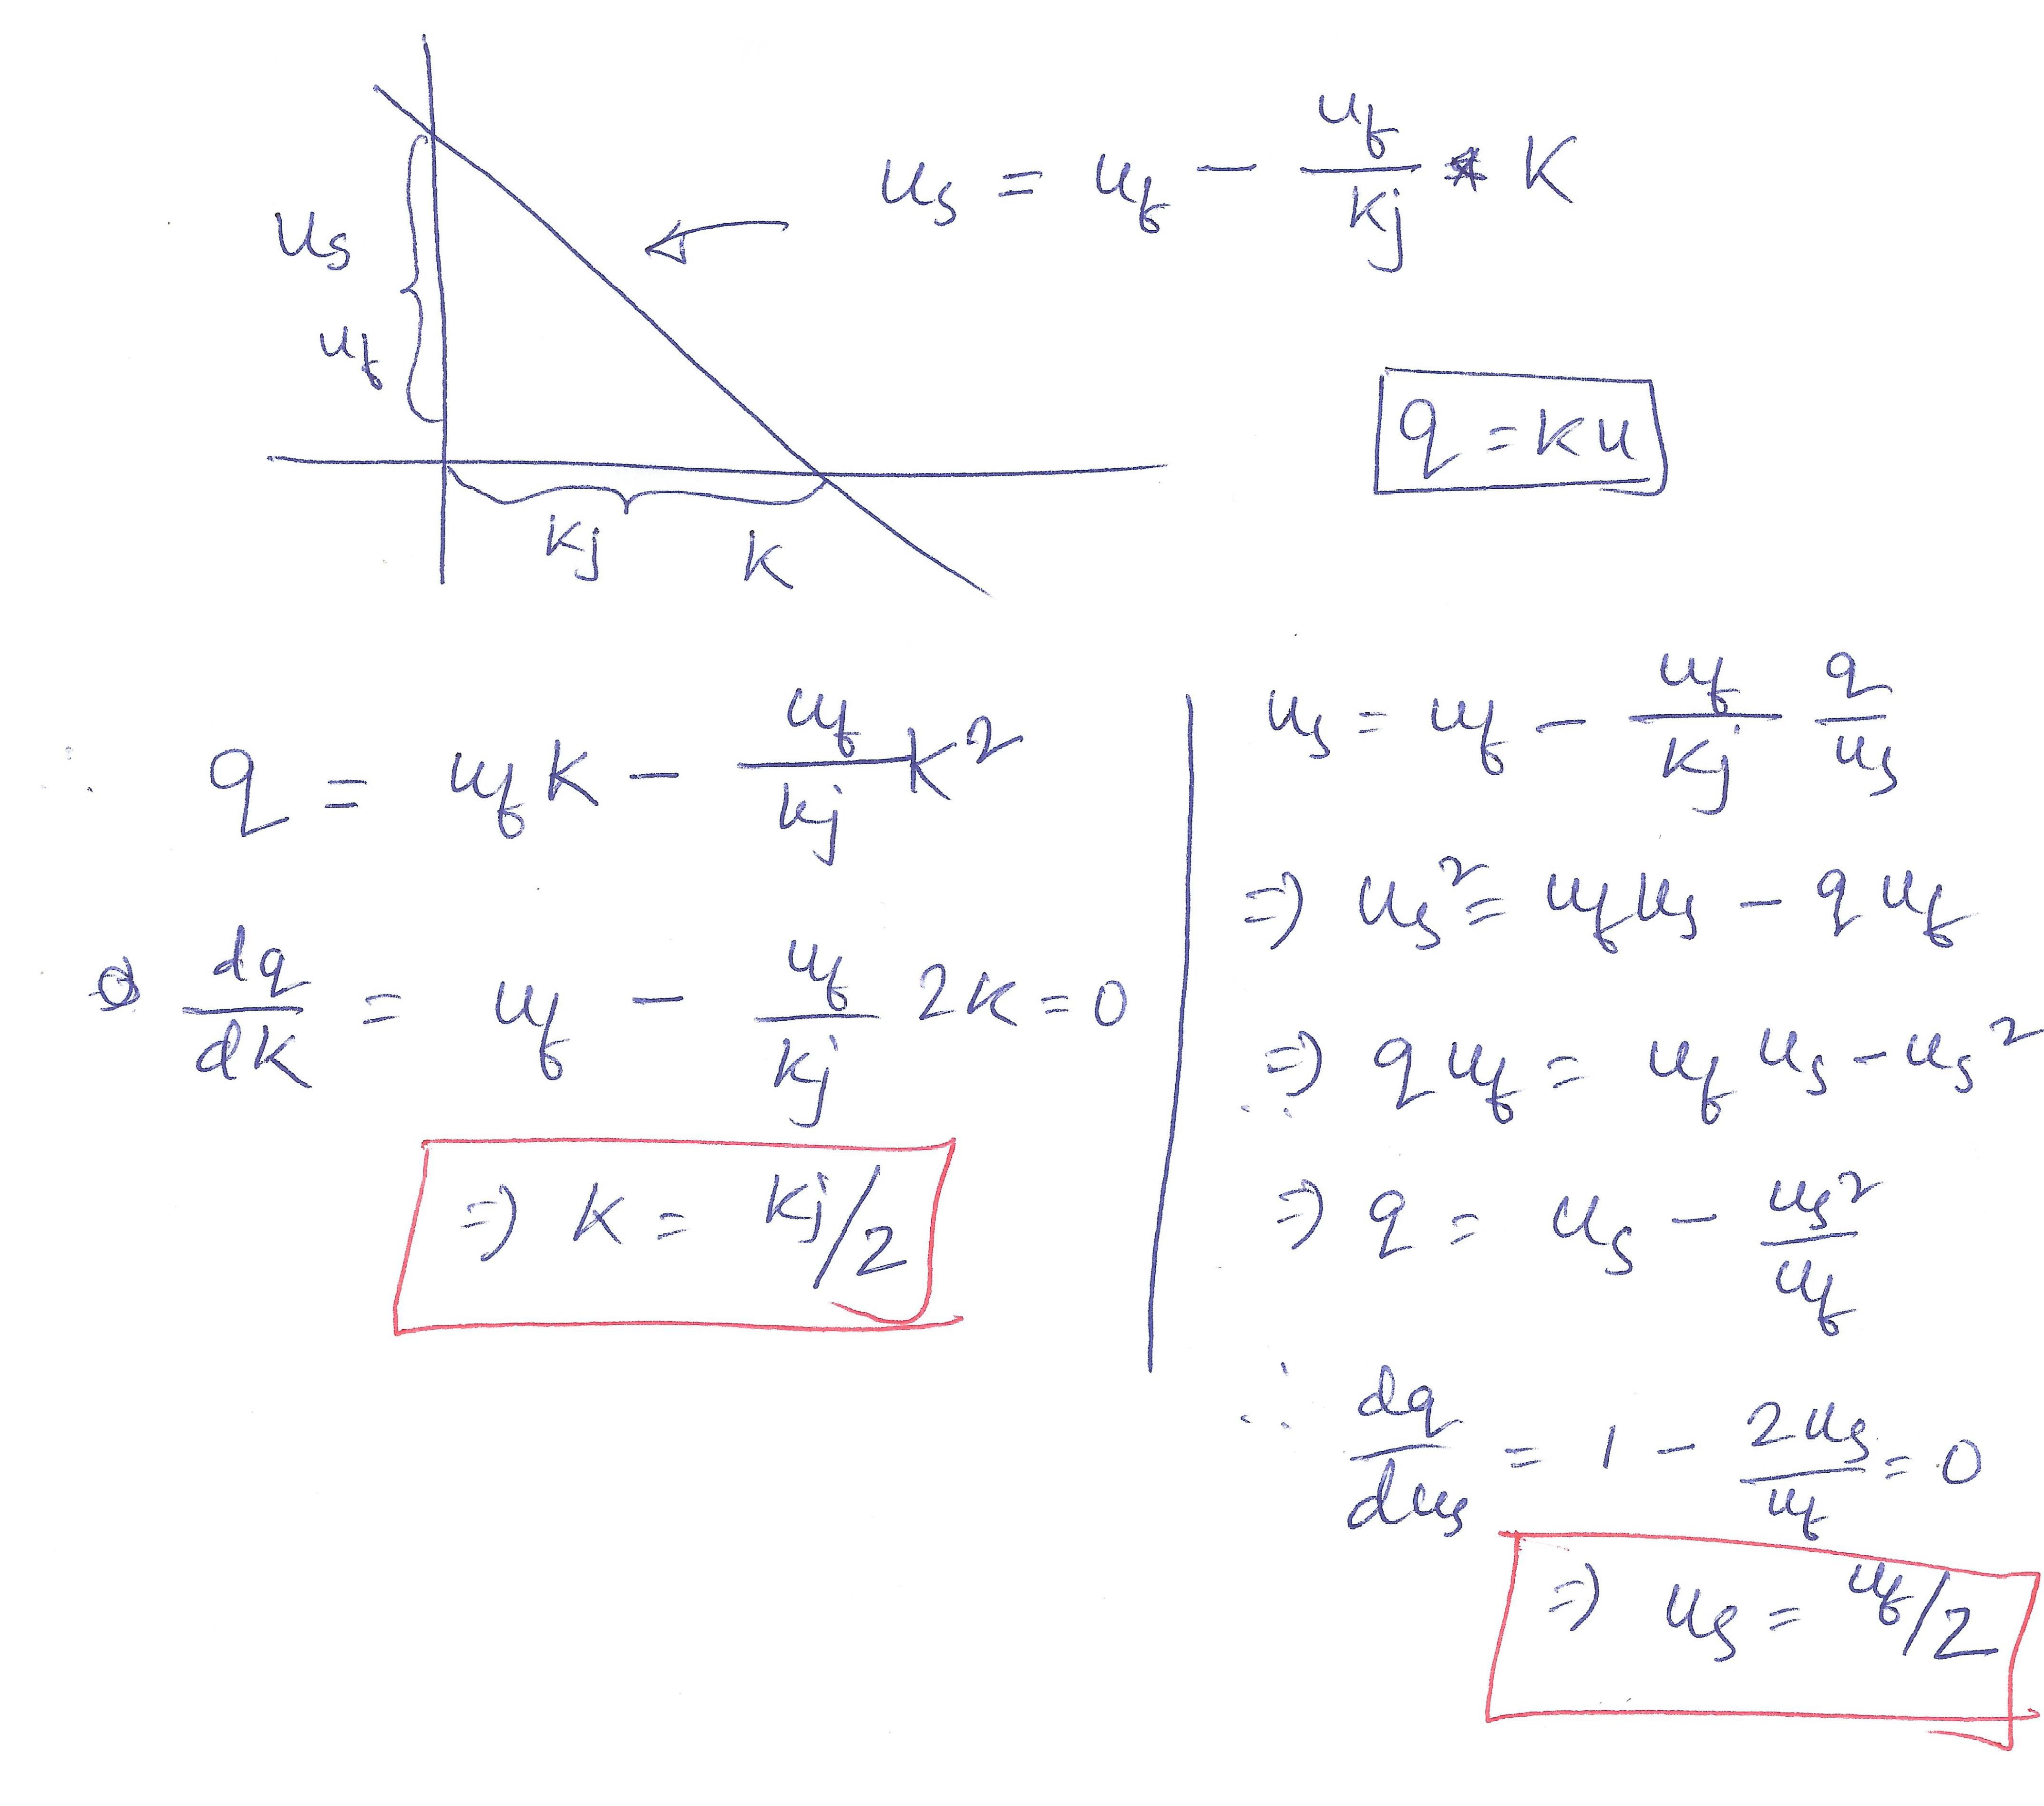 u_s = u_f - u_f/k_j * k
u_s
u_f
k_j k
q = ku
∴ q = u_f k - u_f/k_j k²
dq/dk = u_f - u_f/k_j 2k = 0
⇒ k = k_j/2
u_s = u_f - u_f/k_j q/u_s
⇒ u_s² = u_f u_s - q u_f
⇒ q u_f = u_f u_s - u_s²
⇒ q = u_s - u_s²/u_f
∴ dq/du_s = 1 - 2u_s/u_f = 0
⇒ u_s = u_f/2